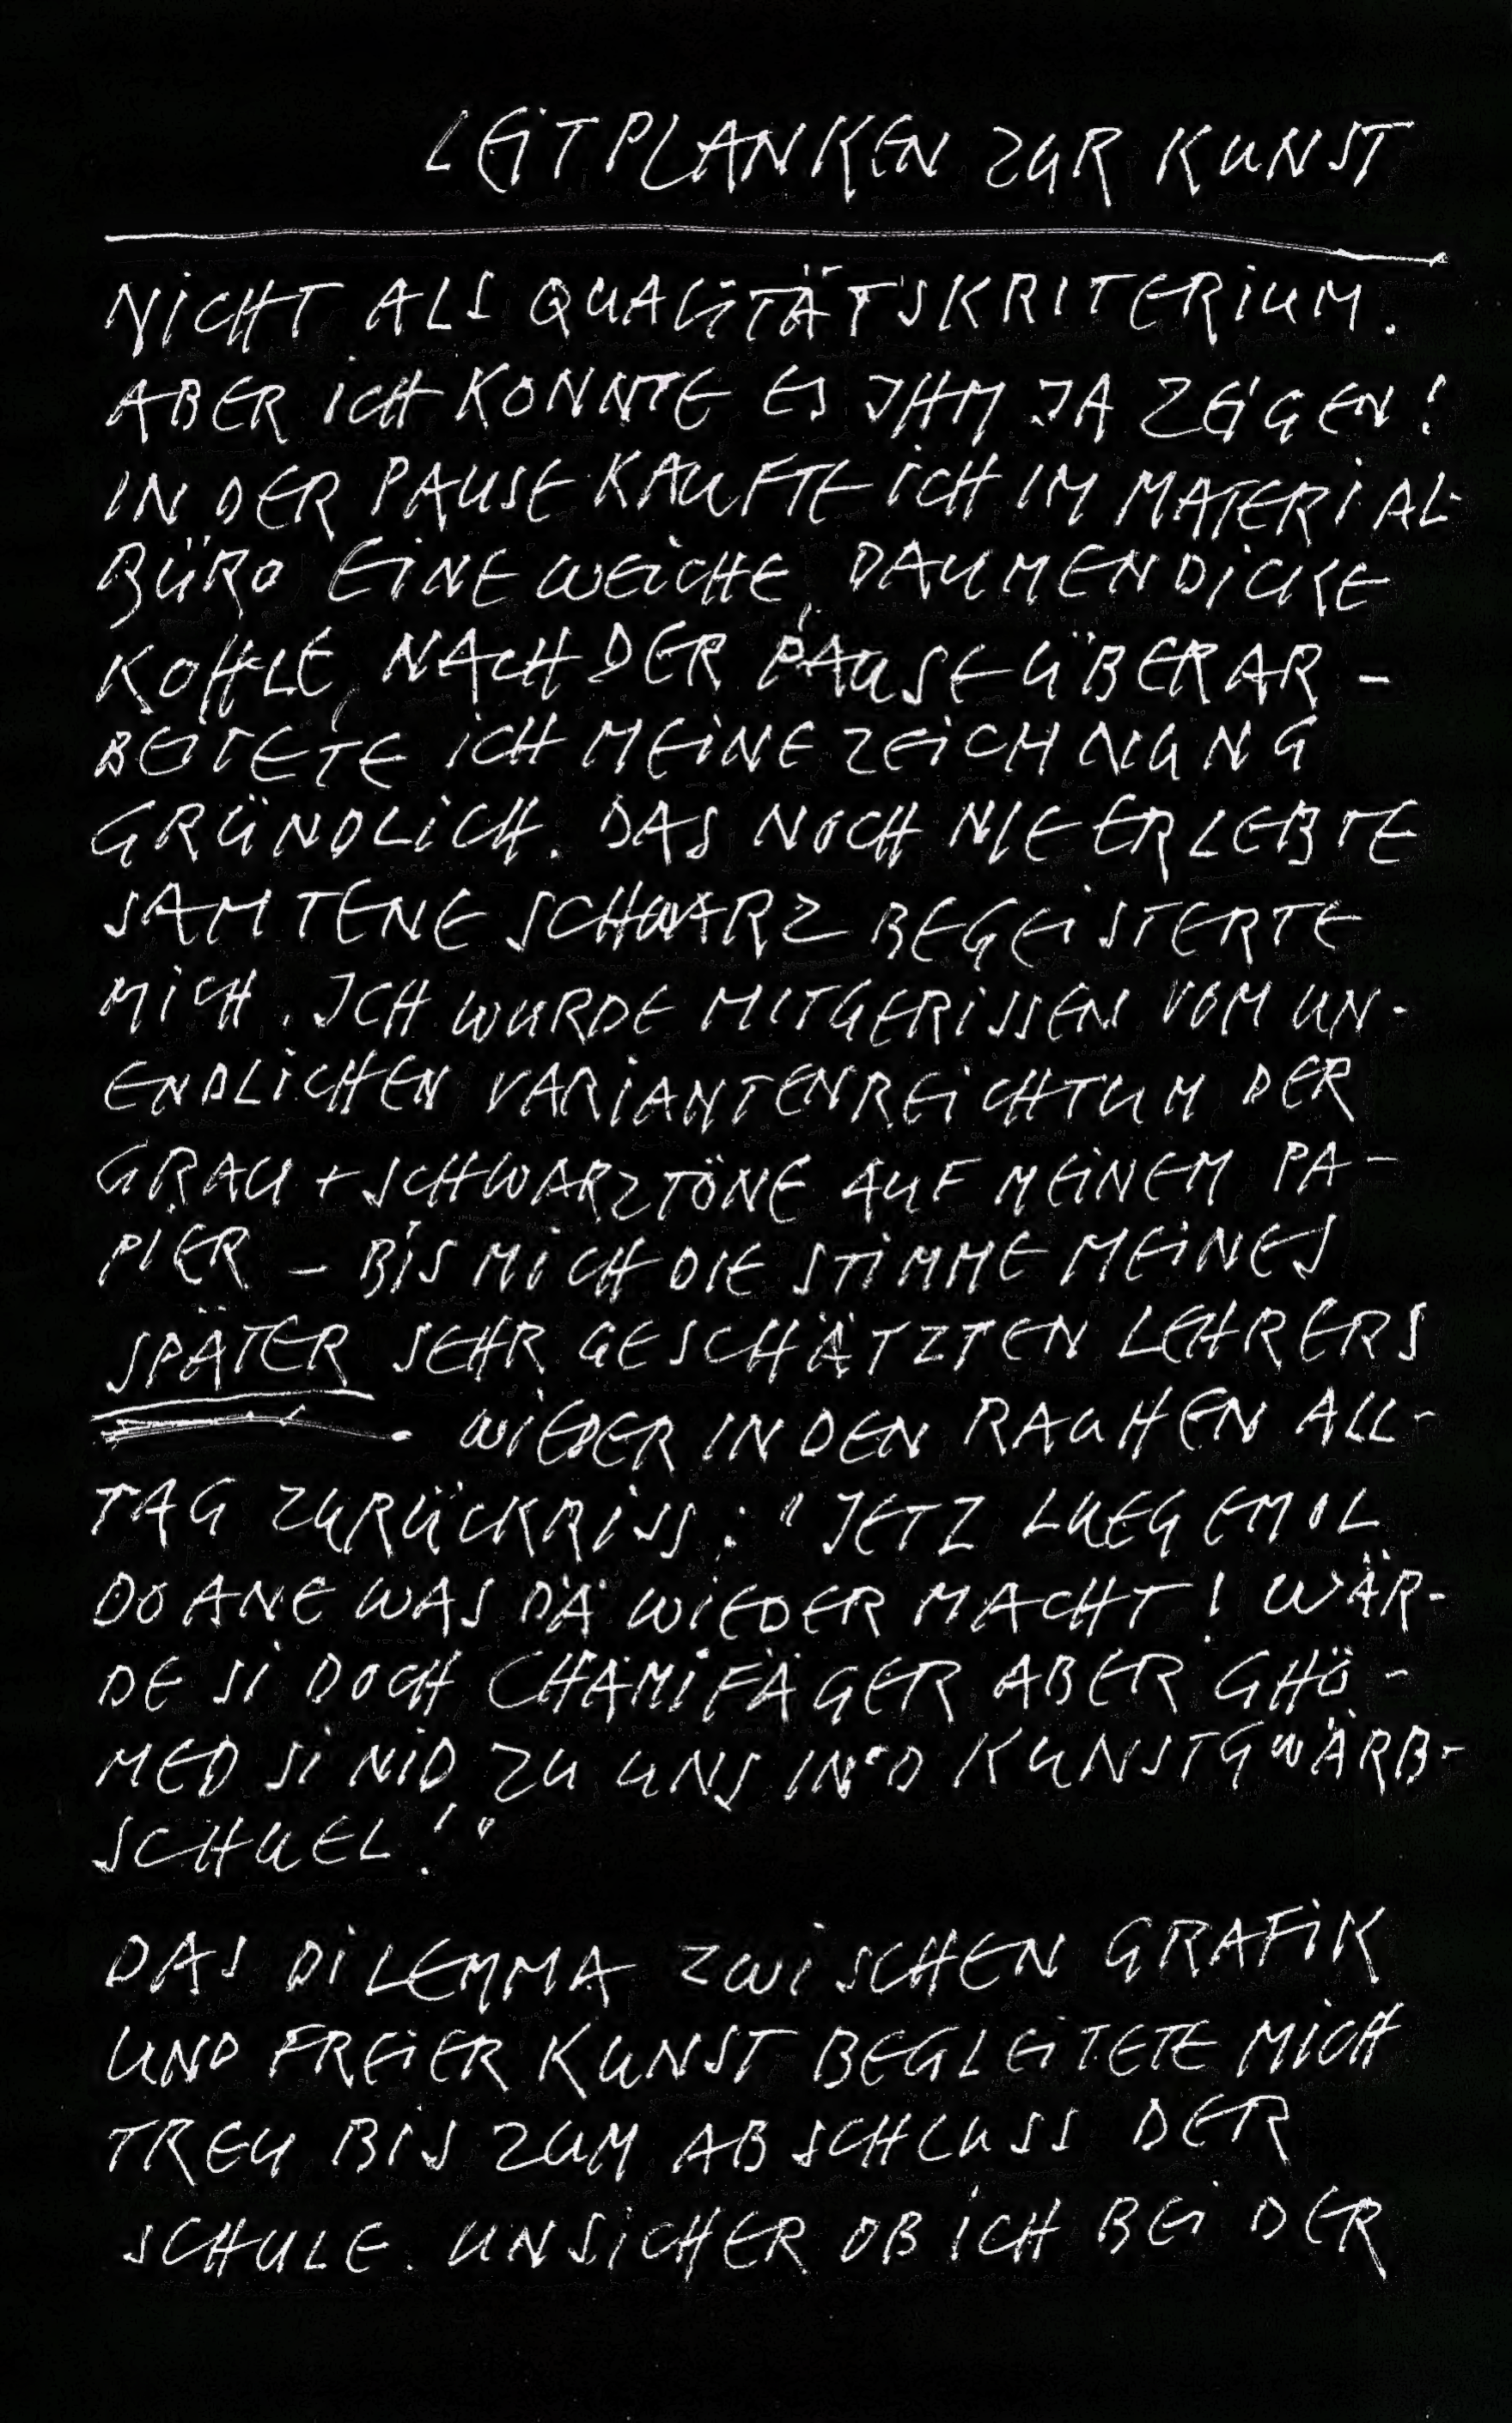 LEITPLANKEN ZUR KUNST
NICHT ALS QUALITÄTSKRITERIUM.
ABER ICH KONNTE ES IHM JA ZEIGEN!
IN DER PAUSE KAUFTE ICH IM MATERIAL-
BÜRO EINE WEICHE, DAUMENDICKE
KOHLE, NACH DER PAUSE ÜBERAR-
BEITETE ICH MEINE ZEICHNUNG
GRÜNDLICH. DAS NOCH NIE ERLEBTE
SAMTENE SCHWARZ BEGEISTERTE
MICH. ICH WURDE MITGERISSEN VOM UN-
ENDLICHEN VARIANTENREICHTUM DER
GRAU + SCHWARZTÖNE AUF MEINEM PA-
PIER – BIS MICH DIE STIMME MEINES
SPÄTER SEHR GESCHÄTZTEN LEHRERS
WIEDER IN DEN RAUHEN ALL-
TAG ZURÜCKRISS: "JETZ LUEG EMOL
DO ANE WAS DÄ WIEDER MACHT! WÄR-
DE SI DOCH CHÄMIFÄGER ABER CHÖ-
MED SI NID ZU UNS IN'D KUNSTGWÄRB-
SCHUEL!"
DAS DILEMMA ZWISCHEN GRAFIK
UND FREIER KUNST BEGLEITETE MICH
TREU BIS ZUM ABSCHLUSS DER
SCHULE. UNSICHER OB ICH BEI DER